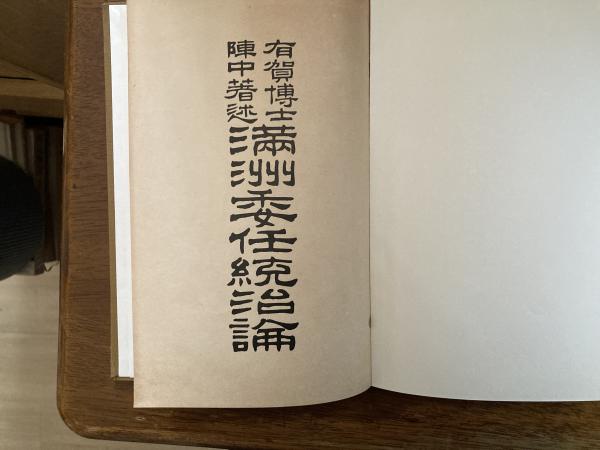 有賀博士
陳中著述
満洲委任統治論